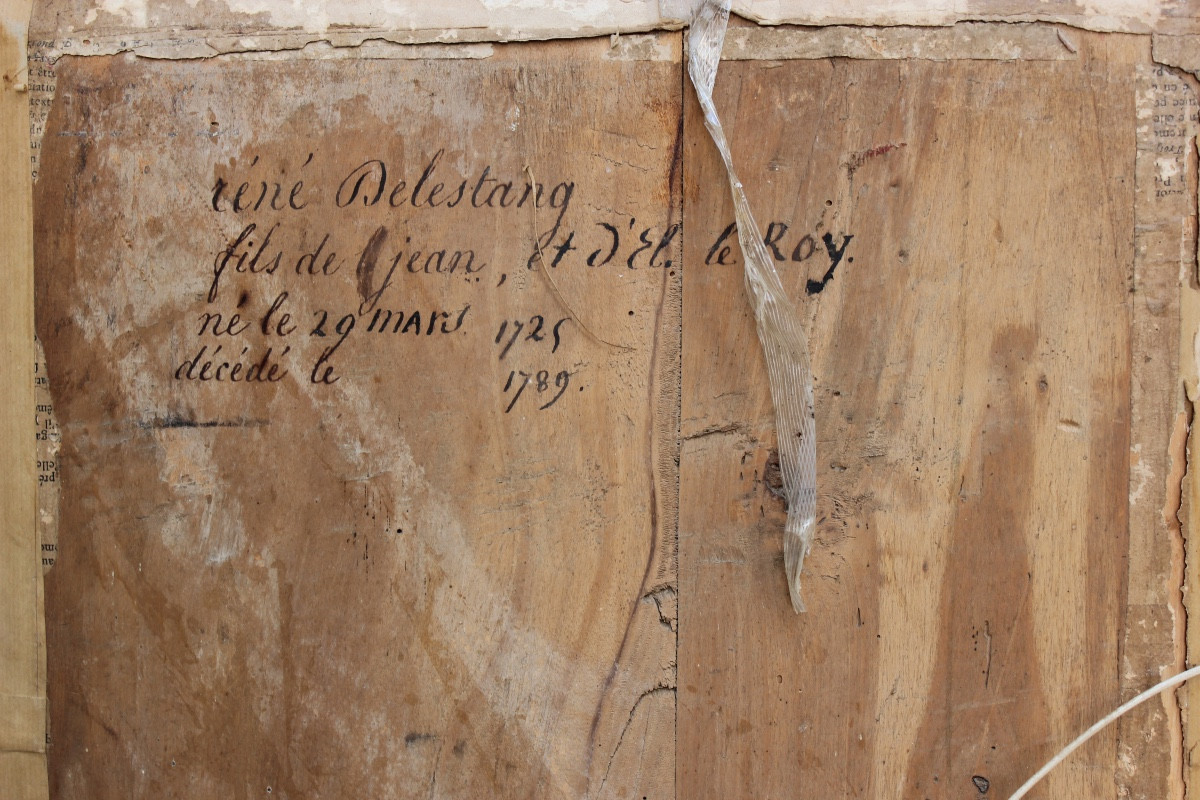 réné Delestang
fils de jean, et D'El. le Roy.
né le 29 mars 1725
décédé le 1789.